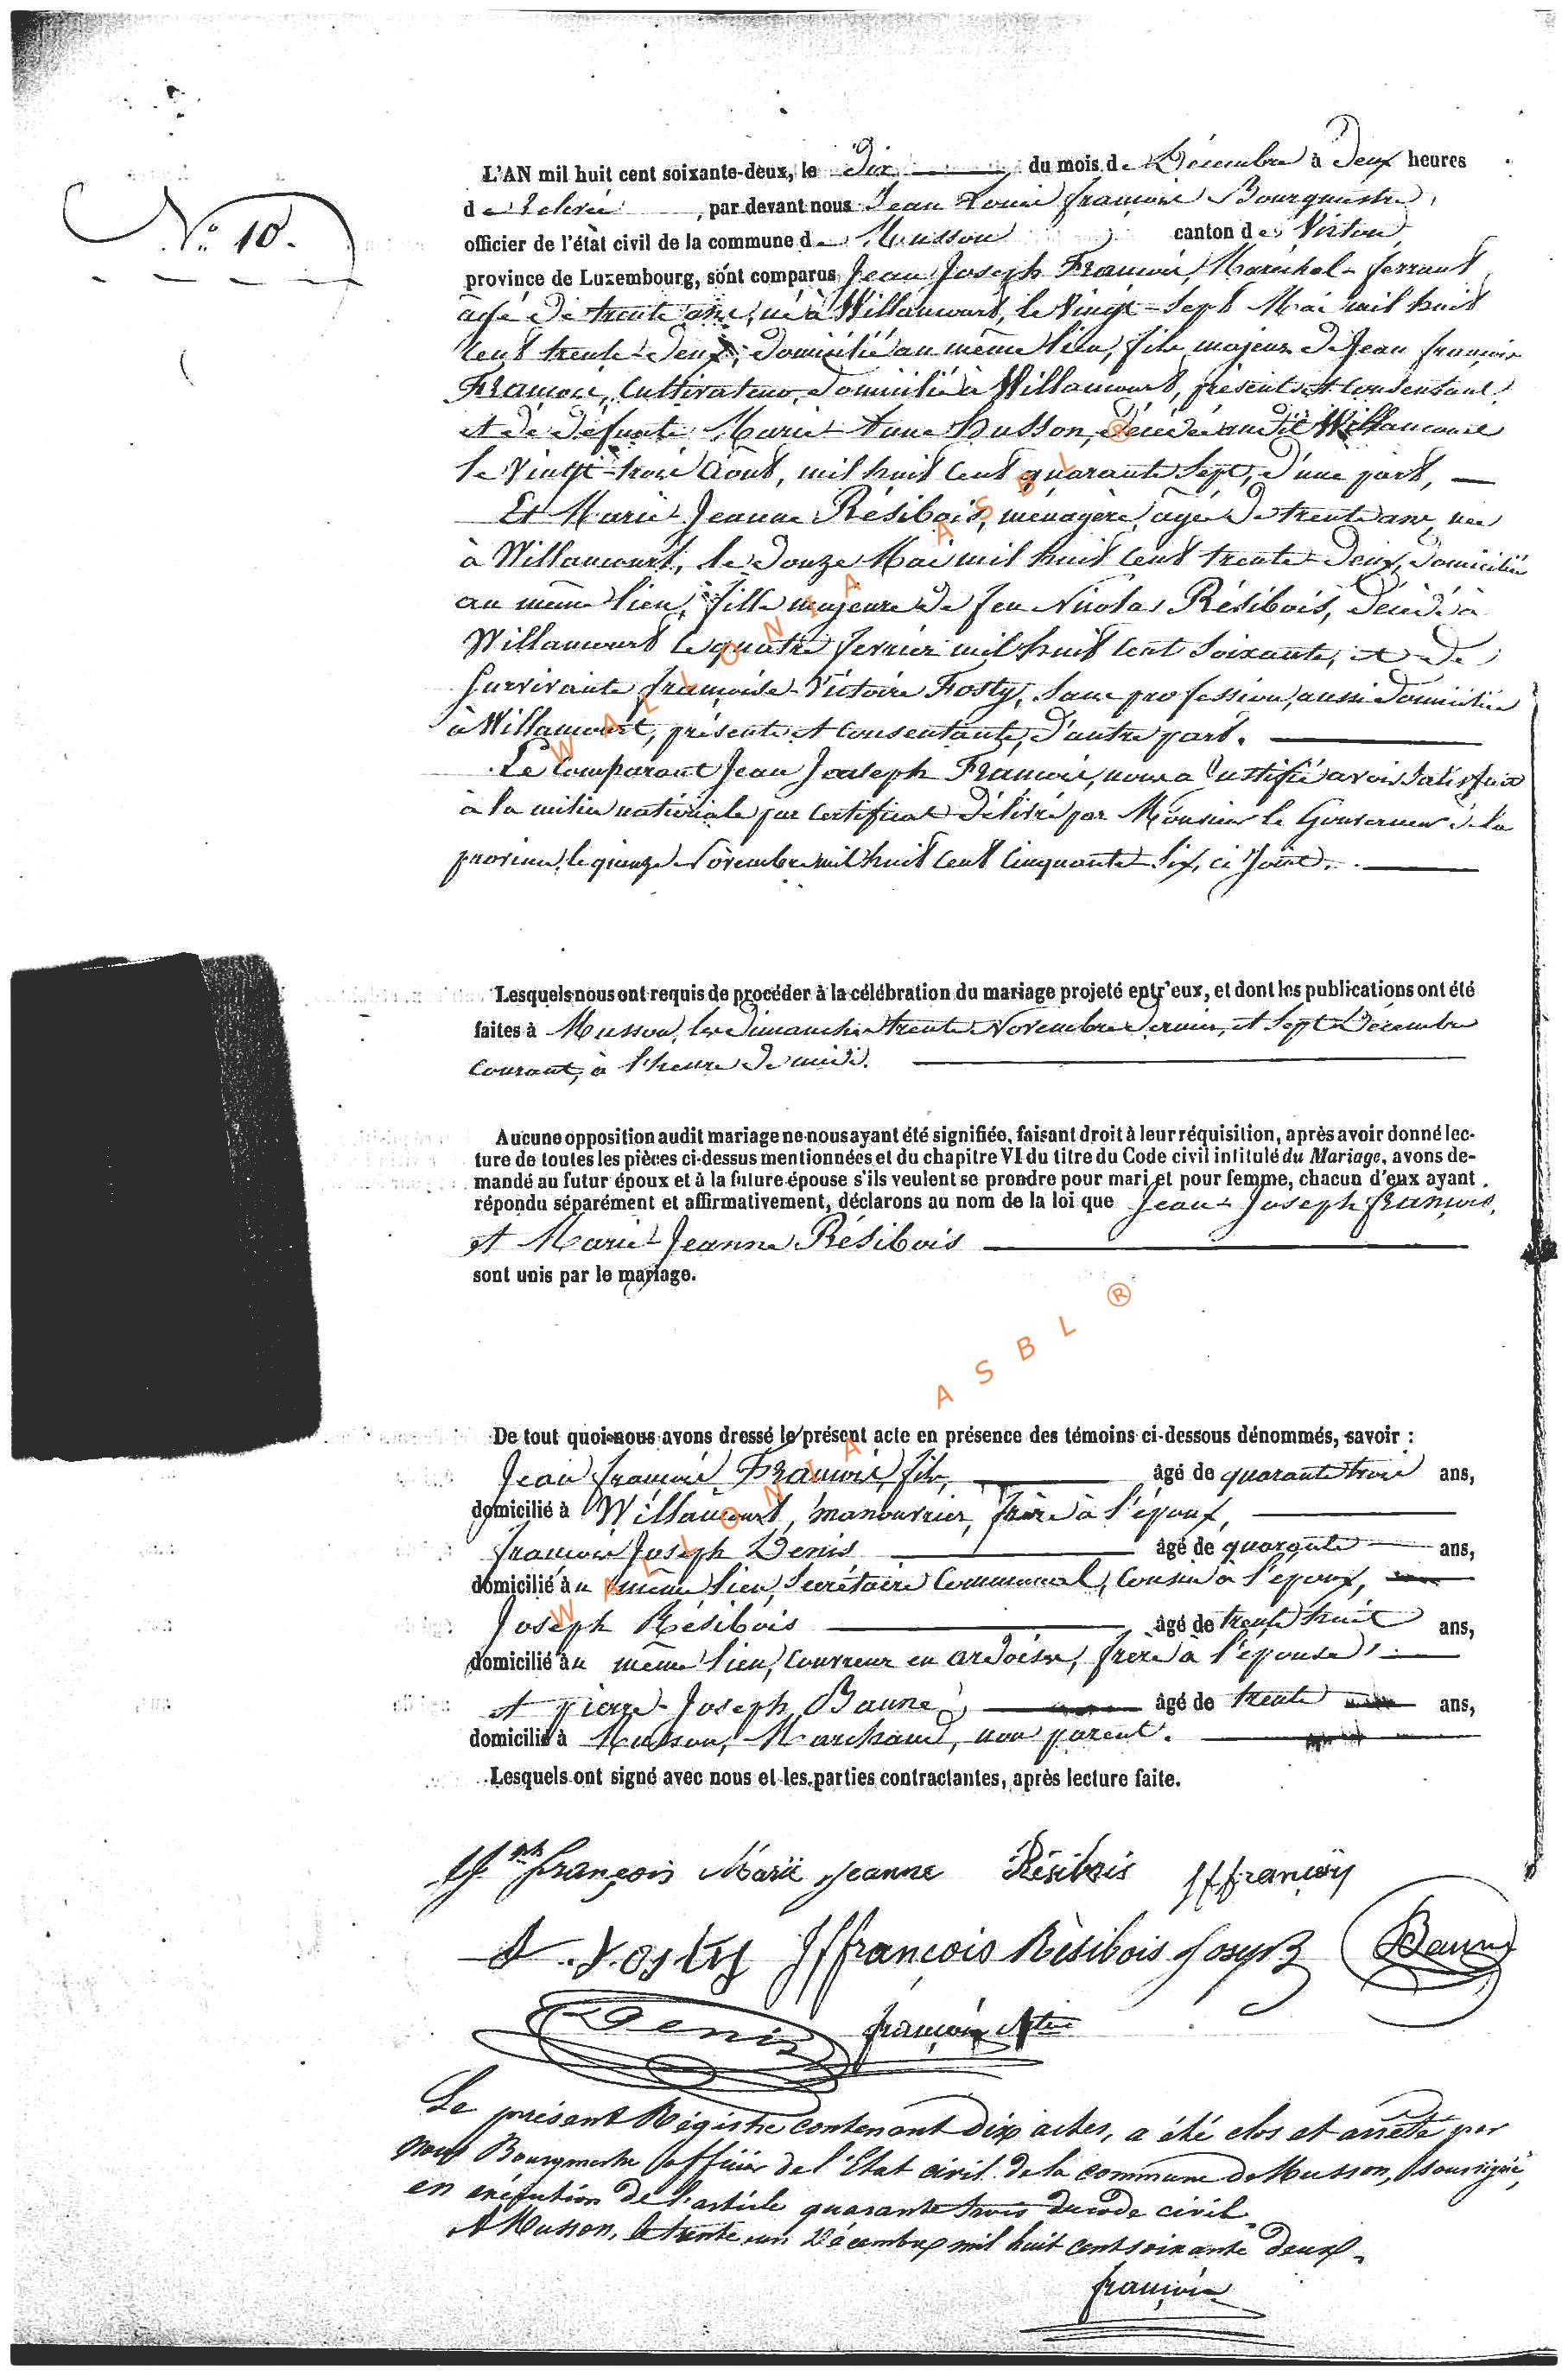 L'AN mil huit cent soixante-deux, le Dix du mois de Décembre à Deux heures
de relevée, par devant nous Jean Louis françois Bourgmestre,
officier de l'état civil de la commune de Musson canton de Virton
province de Luxembourg, sont comparus Jean Joseph François, Maréchal-ferrant
âgé de trente ans, né à Willancourt, le Vingt-Sept Mai mil huit
Cent trente-Deux, domicilié au même lieu, fils majeur de Jean françois
François, Cultivateur, domicilié à Willancourt, présent et Consentant
et de défunte Marie-Anne Husson, décédée audit Willancourt
le Vingt-trois Août, mil huit Cent quarante Sept, d'une part,
Et Marie-Jeanne Résibois, ménagère, âgée de trente ans, née
à Willancourt, le Douze Mai mil huit Cent trente-Deux, domiciliée
N° 10.
au même lieu, fille majeure de feu Nicolas Résibois, décédé à
Willancourt le quatre février mil huit Cent Soixante, et de
Survivante françoise-Victoire Fosty, Sans profession, aussi domiciliée
à Willancourt, présente et Consentante, d'autre part.
Le Comparant Jean Joseph François, nous a Justifié avoir Satisfait
à la milice nationale par Certificat délivré par Monsieur le Gouverneur de la
province, le quinze Novembre mil huit Cent Cinquante-Six, ci Joint.
Lesquels nous ont requis de procéder à la célébration du mariage projeté entr'eux, et dont les publications ont été
faites à Musson, les Dimanches trente Novembre dernier, et Sept Décembre
Courant, à l'heure de midi.
Aucune opposition audit mariage ne nous ayant été signifiée, faisant droit à leur réquisition, après avoir donné lec-
ture de toutes les pièces ci-dessus mentionnées et du chapitre VI du titre du Code civil intitulé du Mariage, avons de-
mandé au futur époux et à la future épouse s'ils veulent se prendre pour mari et pour femme, chacun d'eux ayant
répondu séparément et affirmativement, déclarons au nom de la loi que Jean-Joseph françois,
et Marie-Jeanne Résibois
sont unis par le mariage.
De tout quoi nous avons dressé le présent acte en présence des témoins ci-dessous dénommés, savoir :
Jean françois François, fils, âgé de quarante trois ans,
domicilié à Willancourt, manouvrier, frère à l'époux,
françois Joseph Denis âgé de quarante ans,
domicilié au même lieu, Secrétaire Communal, Cousin à l'époux,
Joseph Résibois âgé de trente huit ans,
domicilié au même lieu, Couvreur en ardoises, frère à l'épouse,
et pierre-Joseph Baune, âgé de trente ans,
domicilié à Musson, Marchand, non parent.
Lesquels ont signé avec nous et les parties contractantes, après lecture faite.
françois Marie Jeanne Résibois Jffrançois
Fosty Jffrançois Rèsibois Joseph Baune
Denis françois
Le présent Régistre contenant dix actes, a été clos et arrêté par
nous Bourgmestre officier de l'Etat civil de la commune de Musson, soussigné,
en exécution de l'article quarante trois du code civil.
A Musson, le trente un Décembre mil huit cent soixante deux.
françois
WALLONIA ASBL ®
WALLONIA ASBL ®